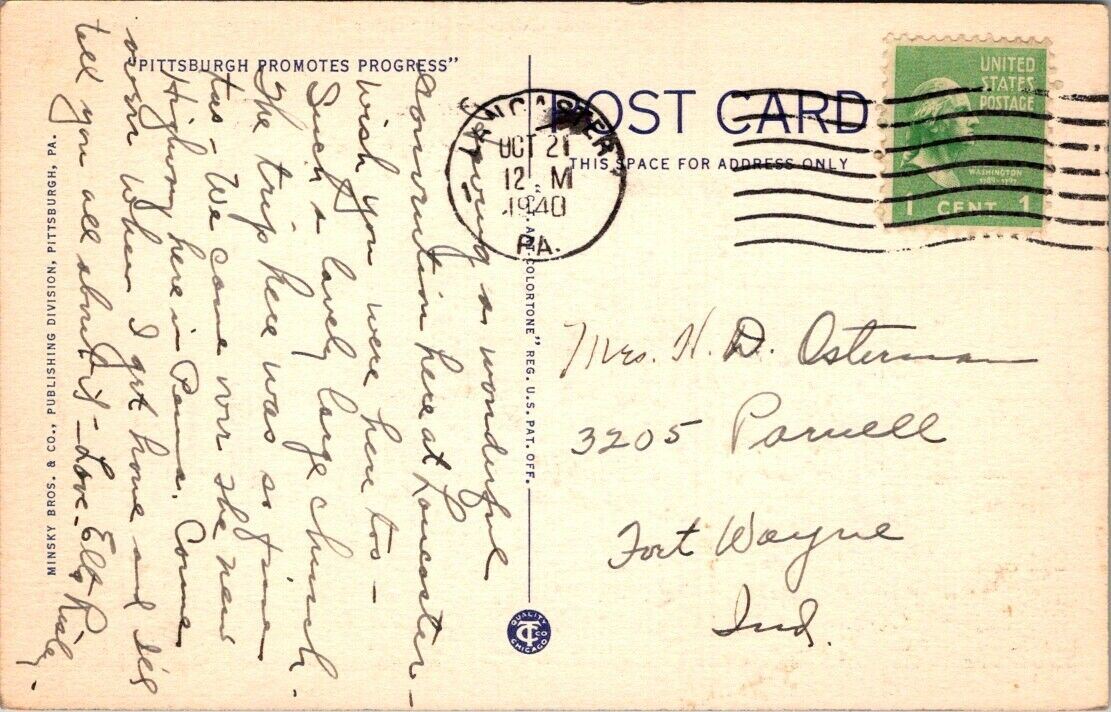 "PITTSBURGH PROMOTES PROGRESS"
POST CARD
THIS SPACE FOR ADDRESS ONLY
UNITED
STATES
POSTAGE
WASHINGTON
1789-1797
1 CENT 1
LANCASTER
OCT 21
12 M
1940
PA.
Having a wonderful
convention here at Lancaster -
Wish you were here too -
Such a lovely large church.
The trip here was so fine
too - We came over the new
Highway here in Penna. Come
over when I get home and I'll
tell you all about it - Love - Elta
Mrs. H. D. Osterman
3205 Parnell
Fort Wayne
Ind.
MINSKY BROS. & CO., PUBLISHING DIVISION, PITTSBURGH, PA.
COLORTONE" REG. U.S. PAT. OFF.
QUALITY
CT CO
CHICAGO